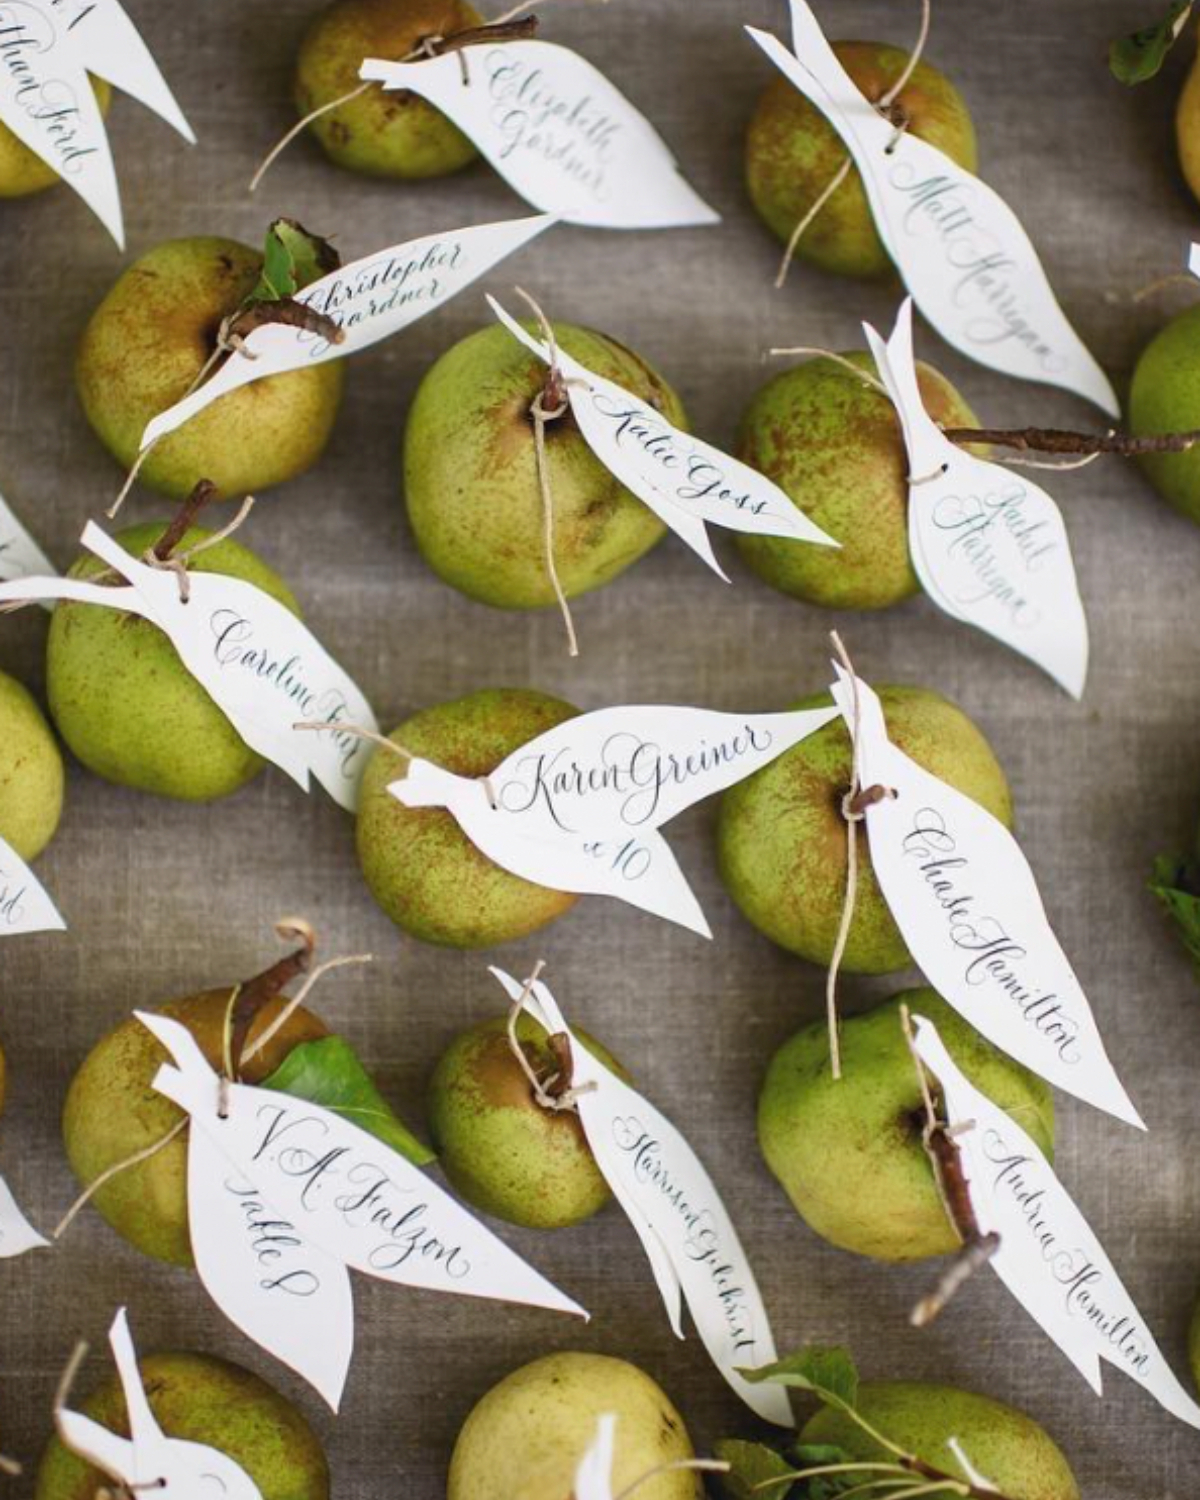 than Ford
Elizabeth
Gordner
Matt Harrigan
Christopher
Gardner
Katie Goss
Rachel
Harrigan
Caroline Fair
Karen Greiner
10
Chase Hamilton
V.A. Falzon
Table 8
Harrison Gilchrist
Andrea Hamilton